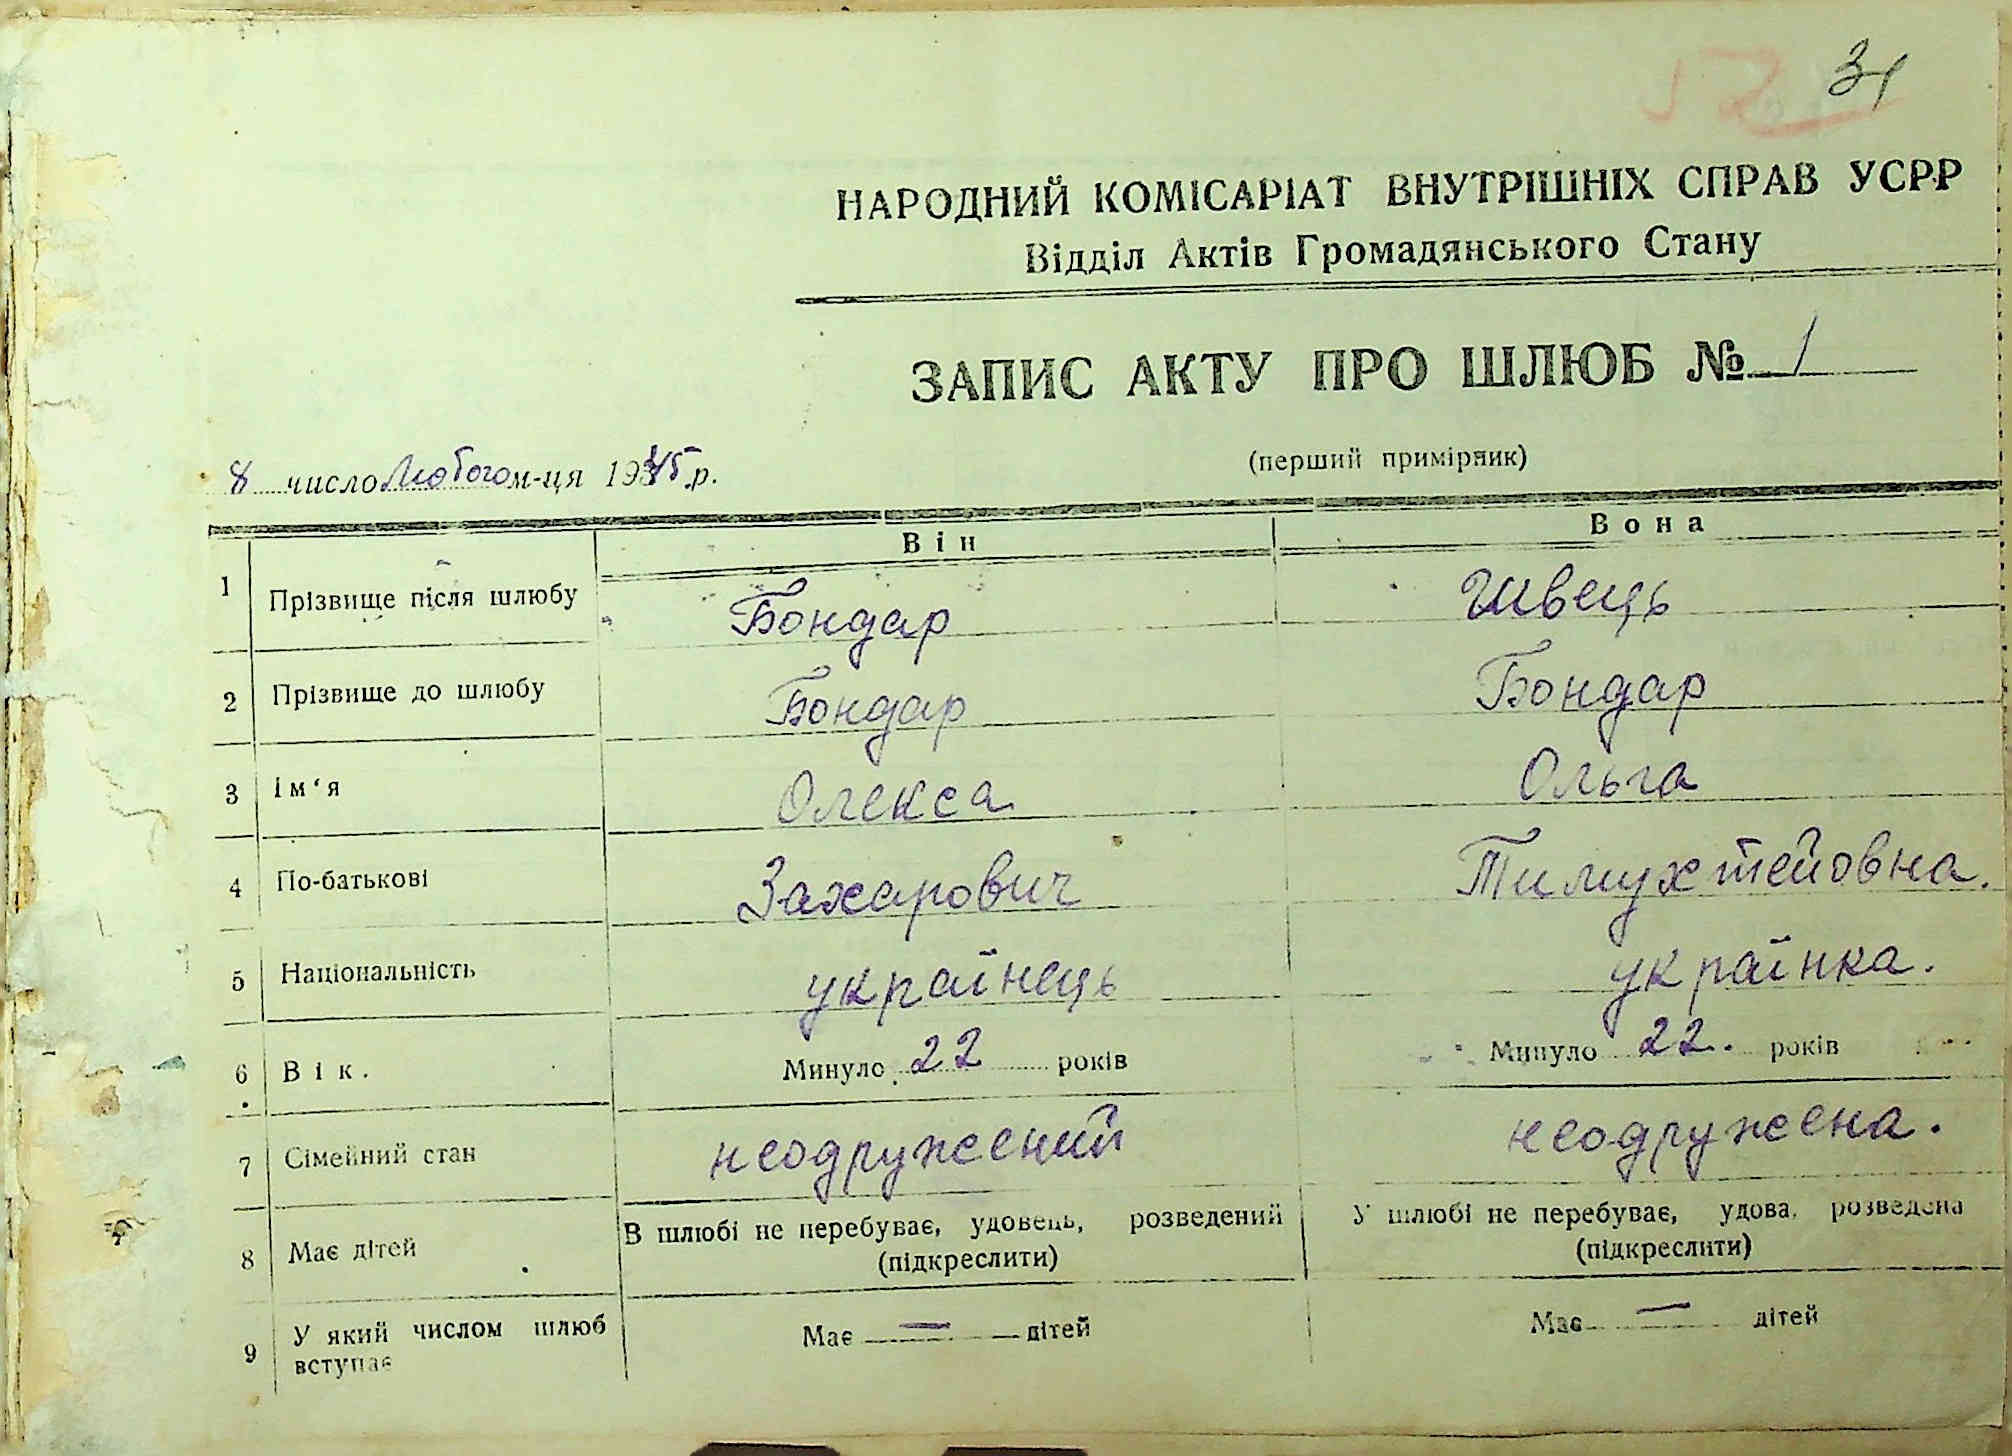 31
52
НАРОДНИЙ КОМІСАРІАТ ВНУТРІШНІХ СПРАВ УСРР
Відділ Актів Громадянського Стану
ЗАПИС АКТУ ПРО ШЛЮБ № 1
(перший примірник)
8 число Лютого м-ця 1945 р.
Він Вона
1 Прізвище після шлюбу Бондар Швець
2 Прізвище до шлюбу Бондар Бондар
3 Ім‘я Олекса Ольга
4 По-батькові Захарович Тимухтейовна.
5 Національність українець українка.
6 Вік. Минуло 22 років Минуло 22. років
7 Сімейний стан неодружений неодружена.
8 Має дітей В шлюбі не перебуває, удовець, розведений У шлюбі не перебуває, удова, розведена
(підкреслити) (підкреслити)
9 У який числом шлюб Має — дітей Має — дітей
вступає